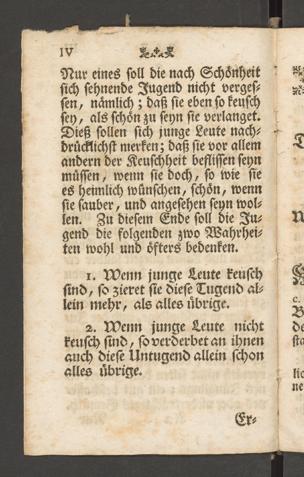 IV
Nur eines soll die nach Schönheit
sich sehnende Jugend nicht verges-
sen, nämlich; daß sie eben so keusch
sey, als schön zu seyn sie verlanget.
Dieß sollen sich junge Leute nach-
drücklichst merken; daß sie vor allem
andern der Keuschheit beflissen seyn
müssen, wenn sie doch, so wie sie
es heimlich wünschen, schön, wenn
sie sauber, und angesehen seyn wol-
len. Zu diesem Ende soll die Ju-
gend die folgenden zwo Wahrhei-
ten wohl und öfters bedenken.
1. Wenn junge Leute keusch
sind, so zieret sie diese Tugend al-
lein mehr, als alles übrige.
2. Wenn junge Leute nicht
keusch sind, so verderbet an ihnen
auch diese Untugend allein schon
alles übrige.
Er-